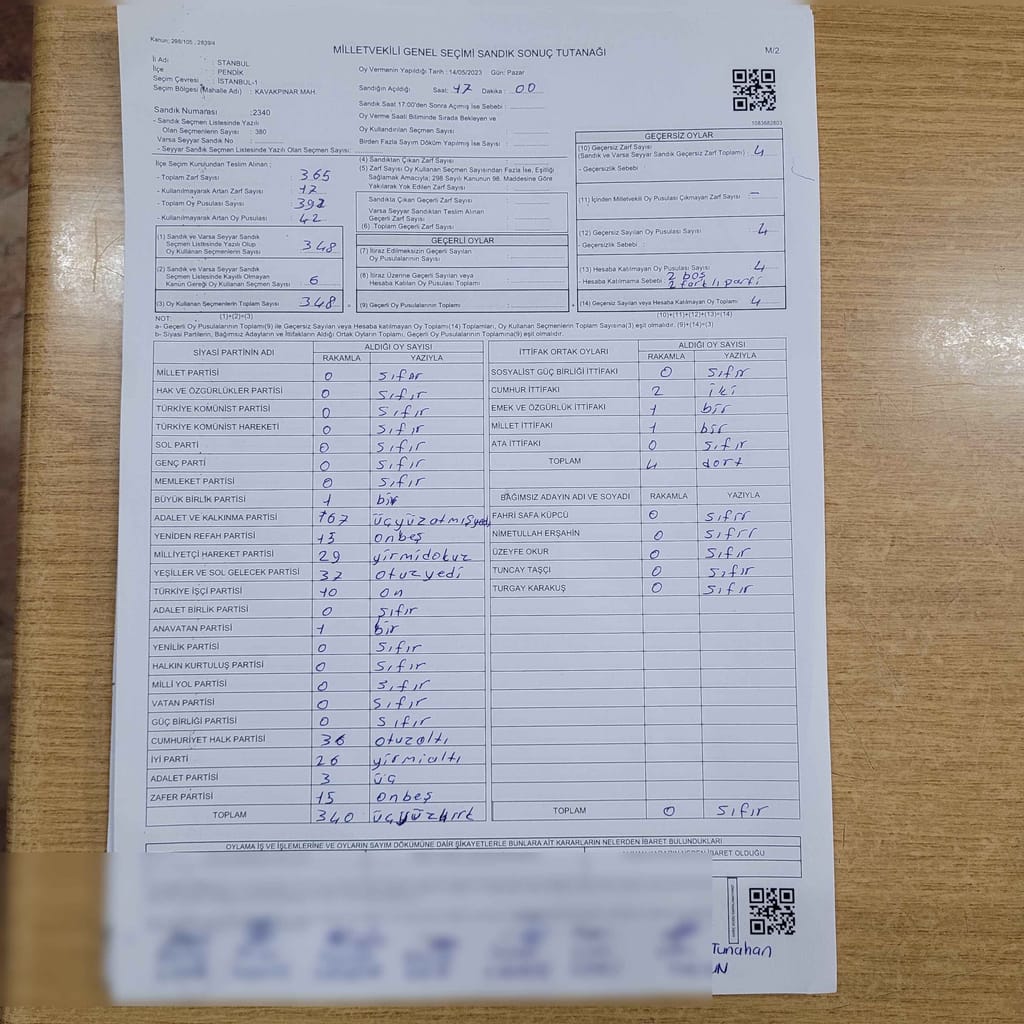 Kanun; 298/105 , 2839/4
MİLLETVEKİLİ GENEL SEÇİMİ SANDIK SONUÇ TUTANAĞI
M/2
İl Adı : İSTANBUL
İlçe : PENDİK
Seçim Çevresi : İSTANBUL-1
Seçim Bölgesi (Mahalle Adı) : KAVAKPINAR MAH.
Oy Vermenin Yapıldığı Tarih : 14/05/2023 Gün: Pazar
Sandığın Açıldığı Saat: 17 Dakika: 00
Sandık Saat 17:00'den Sonra Açılmış İse Sebebi :
Oy Verme Saati Bitiminde Sırada Bekleyen ve
Oy Kullandırılan Seçmen Sayısı :
Birden Fazla Sayım Döküm Yapılmış İse Sayısı :
1083682803
Sandık Numarası :2340
- Sandık Seçmen Listesinde Yazılı
Olan Seçmenlerin Sayısı : 380
Varsa Seyyar Sandık No :
- Seyyar Sandık Seçmen Listesinde Yazılı Olan Seçmen Sayısı:
İlçe Seçim Kurulundan Teslim Alınan ;
- Toplam Zarf Sayısı : 365
- Kullanılmayarak Artan Zarf Sayısı : 17
- Toplam Oy Pusulası Sayısı : 392
- Kullanılmayarak Artan Oy Pusulası : 42
(1) Sandık ve Varsa Seyyar Sandık
Seçmen Listesinde Yazılı Olup
Oy Kullanan Seçmenlerin Sayısı : 348
(2) Sandık ve Varsa Seyyar Sandık
Seçmen Listesinde Kayıtlı Olmayan
Kanun Gereği Oy Kullanan Seçmen Sayısı : 6
(3) Oy Kullanan Seçmenlerin Toplam Sayısı : 348
(1)+(2)=(3)
(4) Sandıktan Çıkan Zarf Sayısı :
(5) Zarf Sayısı Oy Kullanan Seçmen Sayısından Fazla İse, Eşitliği
Sağlamak Amacıyla; 298 Sayılı Kanunun 98. Maddesine Göre
Yakılarak Yok Edilen Zarf Sayısı :
Sandıkta Çıkan Geçerli Zarf Sayısı :
Varsa Seyyar Sandıktan Teslim Alınan
Geçerli Zarf Sayısı :
(6) Toplam Geçerli Zarf Sayısı :
GEÇERLİ OYLAR
(7) İtiraz Edilmeksizin Geçerli Sayılan
Oy Pusulalarının Sayısı :
(8) İtiraz Üzerine Geçerli Sayılan veya
Hesaba Katılan Oy Pusulaları Toplamı :
(9) Geçerli Oy Pusulalarının Toplamı :
GEÇERSİZ OYLAR
(10) Geçersiz Zarf Sayısı
(Sandık ve Varsa Seyyar Sandık Geçersiz Zarf Toplamı) : 4
- Geçersizlik Sebebi :
(11) İçinden Milletvekili Oy Pusulası Çıkmayan Zarf Sayısı : -
(12) Geçersiz Sayılan Oy Pusulası Sayısı : 4
- Geçersizlik Sebebi :
(13) Hesaba Katılmayan Oy Pusulası Sayısı : 4
- Hesaba Katılmama Sebebi : 2 boş
2 farklı parti
(14) Geçersiz Sayılan veya Hesaba Katılmayan Oy Toplamı : 4
(10)+(11)+(12)+(13)=(14)
NOT:
a- Geçerli Oy Pusulaları Toplamı(9) ile Geçersiz Sayılan veya Hesaba katılmayan Oy Toplamı(14) Toplamları, Oy Kullanan Seçmenlerin Toplam Sayısına(3) eşit olmalıdır. (9)+(14)=(3)
b- Siyasi Partilerin, Bağımsız Adayların ve İttifakların Aldığı Ortak Oyların Toplamı, Geçerli Oy Pusulalarının Toplamına(9) eşit olmalıdır.
SİYASİ PARTİNİN ADI ALDIĞI OY SAYISI
RAKAMLA YAZIYLA
MİLLET PARTİSİ 0 sıfır
HAK VE ÖZGÜRLÜKLER PARTİSİ 0 sıfır
TÜRKİYE KOMÜNİST PARTİSİ 0 sıfır
TÜRKİYE KOMÜNİST HAREKETİ 0 sıfır
SOL PARTİ 0 sıfır
GENÇ PARTİ 0 sıfır
MEMLEKET PARTİSİ 0 sıfır
BÜYÜK BİRLİK PARTİSİ 1 bir
ADALET VE KALKINMA PARTİSİ 167 üçyüzatmışyedi
YENİDEN REFAH PARTİSİ 15 onbeş
MİLLİYETÇİ HAREKET PARTİSİ 29 yirmidokuz
YEŞİLLER VE SOL GELECEK PARTİSİ 37 otuzyedi
TÜRKİYE İŞÇİ PARTİSİ 10 on
ADALET BİRLİK PARTİSİ 0 sıfır
ANAVATAN PARTİSİ 1 bir
YENİLİK PARTİSİ 0 sıfır
HALKIN KURTULUŞ PARTİSİ 0 sıfır
MİLLİ YOL PARTİSİ 0 sıfır
VATAN PARTİSİ 0 sıfır
GÜÇ BİRLİĞİ PARTİSİ 0 sıfır
CUMHURİYET HALK PARTİSİ 36 otuzaltı
İYİ PARTİ 26 yirmialtı
ADALET PARTİSİ 3 üç
ZAFER PARTİSİ 15 onbeş
TOPLAM 340 üçyüzkırk
İTTİFAK ORTAK OYLARI ALDIĞI OY SAYISI
RAKAMLA YAZIYLA
SOSYALİST GÜÇ BİRLİĞİ İTTİFAKI 0 sıfır
CUMHUR İTTİFAKI 2 iki
EMEK VE ÖZGÜRLÜK İTTİFAKI 1 bir
MİLLET İTTİFAKI 1 bir
ATA İTTİFAKI 0 sıfır
TOPLAM 4 dört
BAĞIMSIZ ADAYIN ADI VE SOYADI RAKAMLA YAZIYLA
FAHRİ SAFA KÜPCÜ 0 sıfır
NİMETULLAH ERŞAHİN 0 sıfır
ÜZEYFE OKUR 0 sıfır
TUNCAY TAŞÇI 0 sıfır
TURGAY KARAKUŞ 0 sıfır
TOPLAM 0 sıfır
OYLAMA İŞ VE İŞLEMLERİNE VE OYLARIN SAYIM DÖKÜMÜNE DAİR ŞİKAYETLERLE BUNLARA AİT KARARLARIN NELERDEN İBARET BULUNDUKLARI
İBARET OLDUĞU
Tunahan
UN